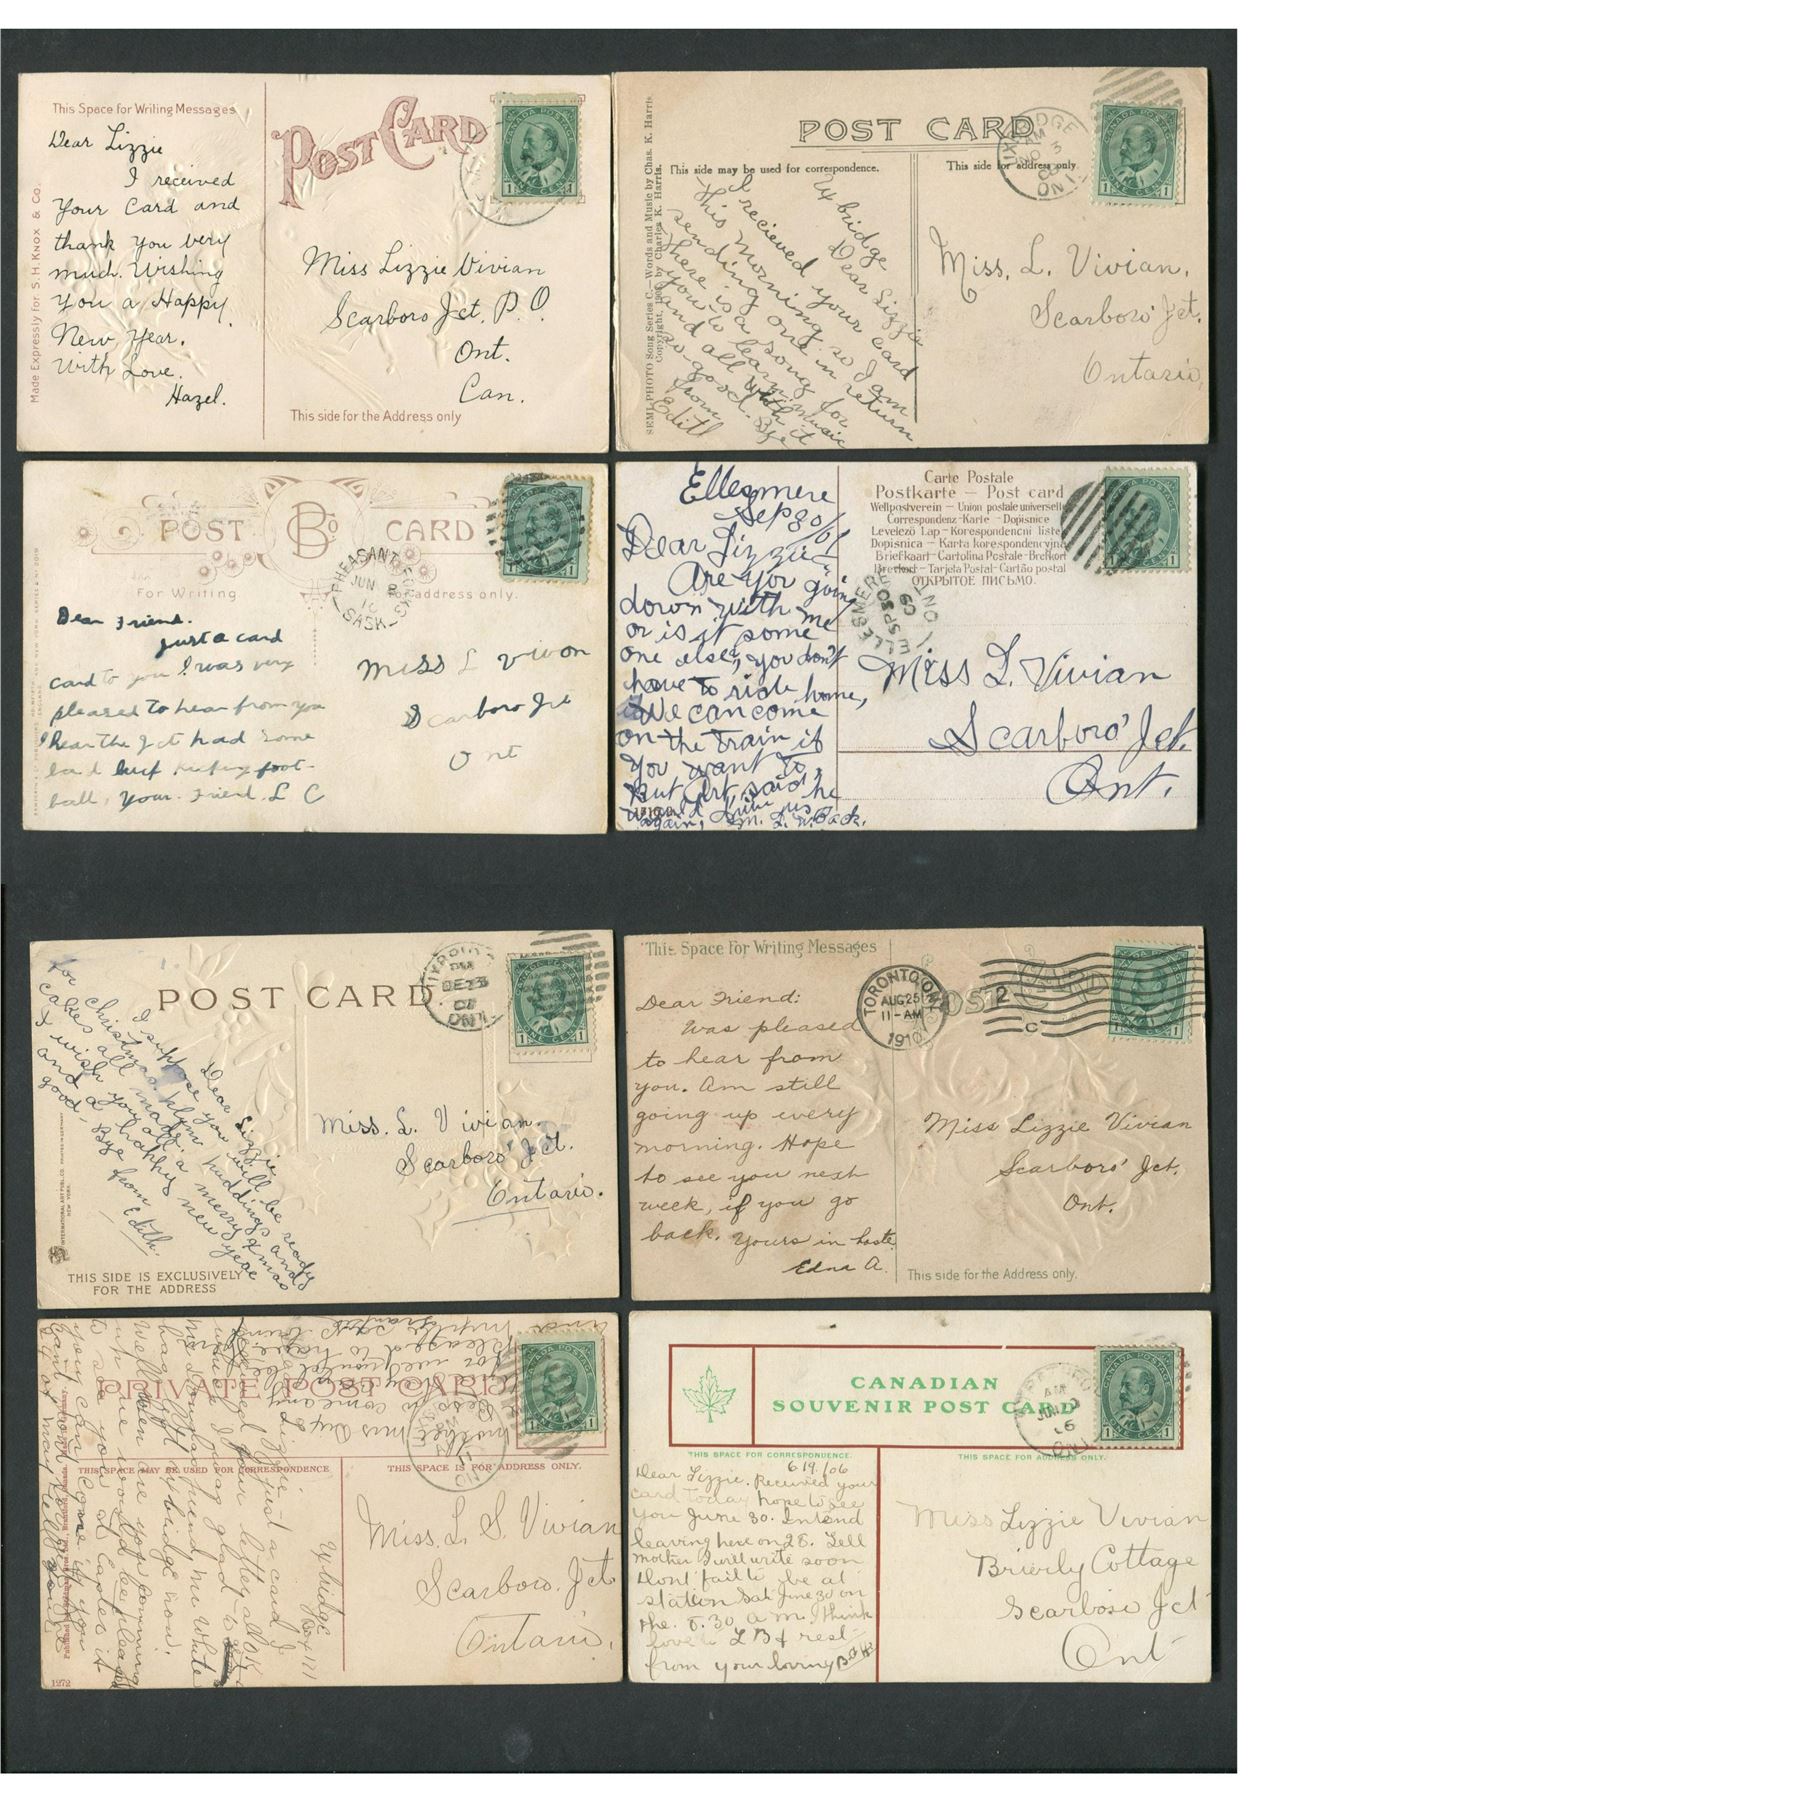 This Space for Writing Messages
POST CARD
CANADA POSTAGE
1 ONE CENT 1
Dear Lizzie
I received
Your Card and
thank you very
much. Wishing
You a Happy
New Year.
With Love.
Hazel.
Made Expressly for S. H. KNOX & CO.
Miss Lizzie Vivian
Scarboro Jct. P.O.
Ont.
Can.
This side for the Address only
POST CARD
This side may be used for correspondence.
This side for address only.
UXBRIDGE
AM
ONT
CANADA POSTAGE
1 ONE CENT 1
SEMI-PHOTO Song Series C.—Words and Music by Chas. K. Harris.
Copyright, by Charles K. Harris.
Uxbridge
Dear Lizzie
I recieved your card
this morning so I am
sending one in return
there is a song for
you to learn music
and all with it
so good. Bye
from
Edith
Miss. L. Vivian.
Scarboro' Jct.
Ontario.
POST CARD
B Co
For Writing
For address only.
PHEASANT FORKS
JUN 8
10
SASK
1 ONE CENT 1
Dear Friend.
just a card
card to you I was very
pleased to hear from you
I hear the Jct had some
foot-
ball, Your Friend. L C
Miss L Vivon
Scarboro Jct
Ont
Carte Postale
Postkarte — Post card
Weltpostverein — Union postale universelle
Correspondenz-Karte — Dopisnice
Levelező Lap — Korespondencni listek
Dopisnica — Karta korespondencyjna
Briefkaart — Cartolina Postale — Brefkort
Brevkort — Tarjeta Postal — Cartão postal
ОТКРЫТОЕ ПИСЬМО.
ELLESMERE
SP 30
09
ONT
1 ONE CENT 1
Ellesmere
Sep 30/09
Dear Lizzie
Are you going
down with me
or is it some
one else, you don't
have to ride home,
We can come
on the train if
you want to.
But Art. said he
would drive us
again,
Miss L. Vivian
Scarboro' Jct.
Ont.
POST CARD.
PM
DE 23
ONT
1 ONE CENT 1
Dear Lizzie
I suppose you will be ready
for Christmas. plum puddings and
cakes all made.
I wish you all a merry Xmas
and a happy new year
good. Bye from
Edith.
INTERNATIONAL ART PUBL. CO.
NEW YORK.
PRINTED IN GERMANY
THIS SIDE IS EXCLUSIVELY
FOR THE ADDRESS
Miss. L. Vivian.
Scarboro' Jct.
Ontario.
This Space For Writing Messages
POST CARD
TORONTO, ONT.
AUG 25
11-AM
1910
2
C
1 ONE CENT 1
Dear Friend:
Was pleased
to hear from
you. Am still
going up every
morning. Hope
to see you next
week, if you go
back. Yours in haste
Edna A.
Miss Lizzie Vivian
Scarboro' Jct.
Ont.
This side for the Address only.
PRIVATE POST CARD
THIS SPACE MAY BE USED FOR CORRESPONDENCE
THIS SPACE IS FOR ADDRESS ONLY.
PM
ONT
1 ONE CENT 1
Uxbridge
Box 171
Dear Lizzie
just a card I
received your letter
was glad to
Mr White
Uxbridge now.
Well when are you coming
up we would be pleased
to see you at Easter if
you can come
Miss. L. S. Vivian
Scarboro. Jct
Ontario.
1272
CANADIAN
SOUVENIR POST CARD
THIS SPACE FOR CORRESPONDENCE.
THIS SPACE FOR ADDRESS ONLY.
AM
ONT
CANADA POSTAGE
1 ONE CENT 1
6 19./06
Dear Lizzie. Received your
card today hope to see
you June 30. Intend
leaving here on 28. Tell
Mother I will write soon
Dont fail to be at
station Sat June 30 on
the. 8.30 a m. I think
love to L B & rest
from your loving
Miss Lizzie Vivian
Brierly Cottage
Scarboro Jct
Ont